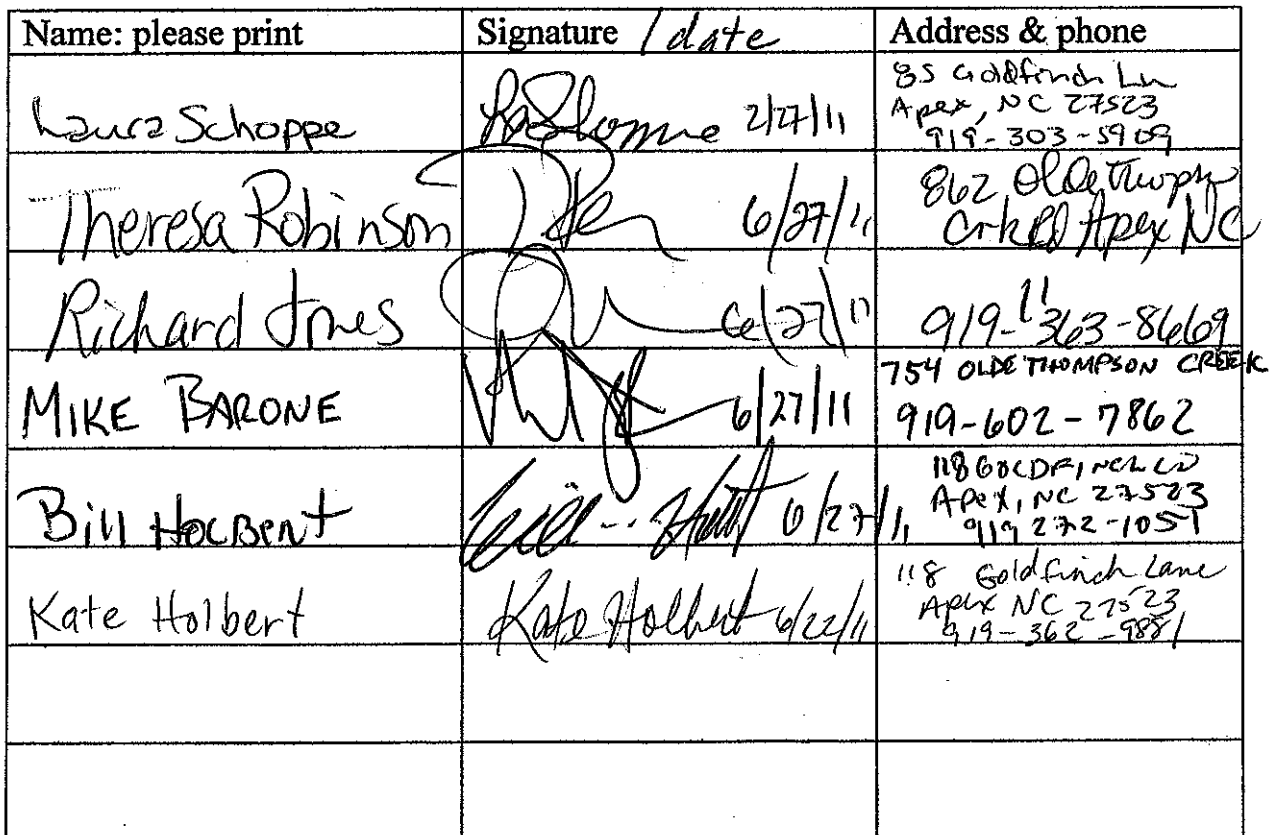 Name: please print Signature / date Address & phone
Laura Schoppe 2/27/11 85 Goldfinch Ln
Apex, NC 27523
919-303-5909
Theresa Robinson 6/27/11 862 Olde Thompson
Crk Rd Apex NC
Richard Jones 6/27/11 " 919-363-8669
MIKE BARONE 6/27/11 754 OLDE THOMPSON CREEK
919-602-7862
Bill Holbert 6/27/11 118 GOLDFINCH LN
Apex, NC 27523
919 272-1051
Kate Holbert Kate Holbert 6/22/11 118 Goldfinch Lane
Apex NC 27523
919-362-9881